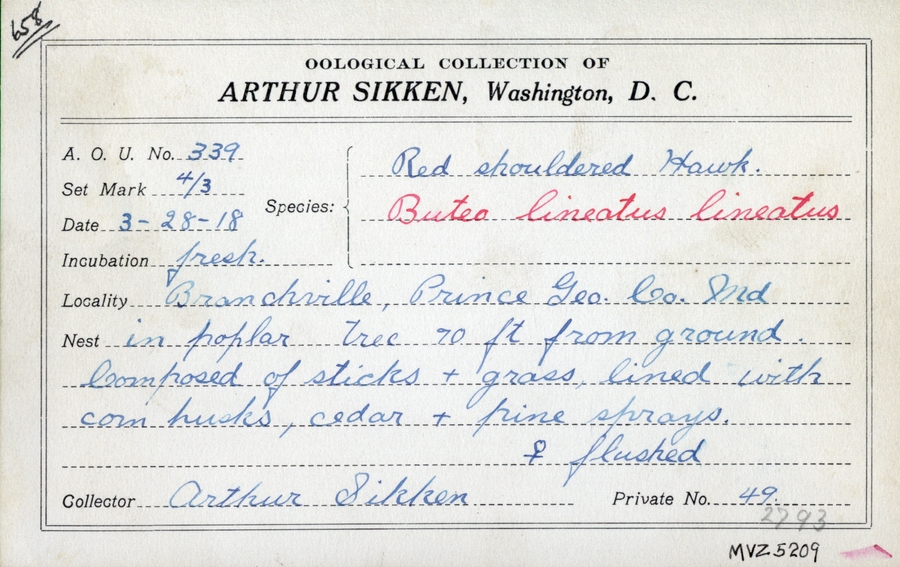 658
OOLOGICAL COLLECTION OF
ARTHUR SIKKEN, Washington, D. C.
A. O. U. No. 339
Set Mark 4/3
Date 3-28-18
Incubation fresh.
Species:
Red shouldered Hawk.
Buteo lineatus lineatus
Locality Branchville, Prince Geo. Co. Md
Nest in poplar tree 70 ft from ground.
Composed of sticks + grass, lined with
corn husks, cedar + pine sprays.
♀ flushed
Collector Arthur Sikken Private No. 49.
2793
MVZ 5209